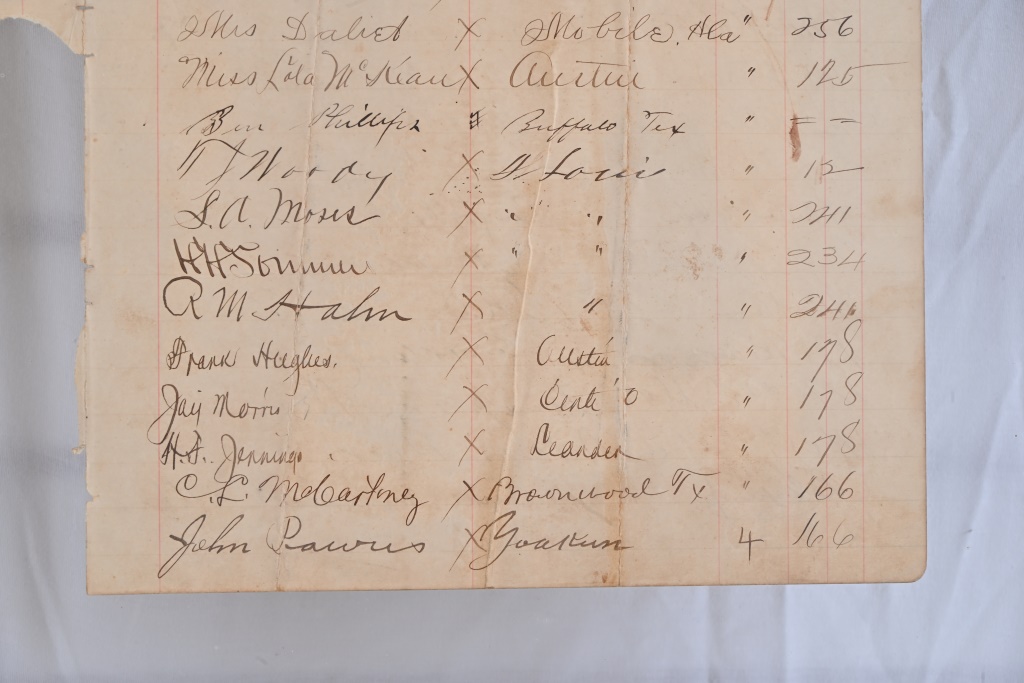 Mrs Daliet X Mobile. Ala " 256
Miss Lola McKean X Austin " 125
Ben Phillips X Buffalo Tex " = =
T J Woody X St Louis " 12
L. A. Moses X " " " 241
H H Sommer X " " " 234
R M Hahn X " " 241
Frank Hughes. X Austin " 178
Jay Morris X " 178
H. F. Jennings. X Leander " 178
C. L. McCartney X Brownwood Tx " 166
John X Yoakum 4 166